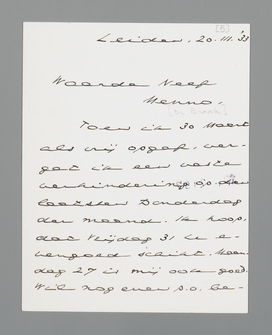 [5]
Leiden, 20.III.'33
Waarde Neef
Menno,
[ter Braak]
Toen ik 30 Maart
als vrij opgaf, ver-
gat ik een vaste
verhindering op den
laatsten Donderdag
der maand. Ik hoop,
dat Vrijdag 31 U e-
vengoed schikt. Maan-
dag 27 is mij ook goed.
Wil nog even s.o. be-